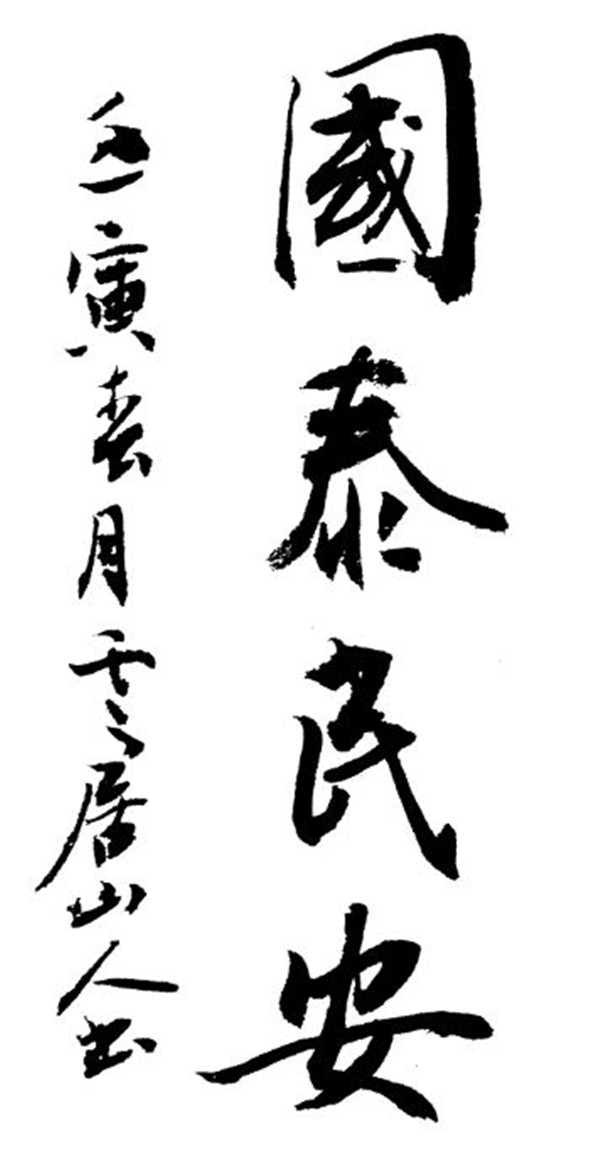 國泰民安
壬寅春月云居山人书